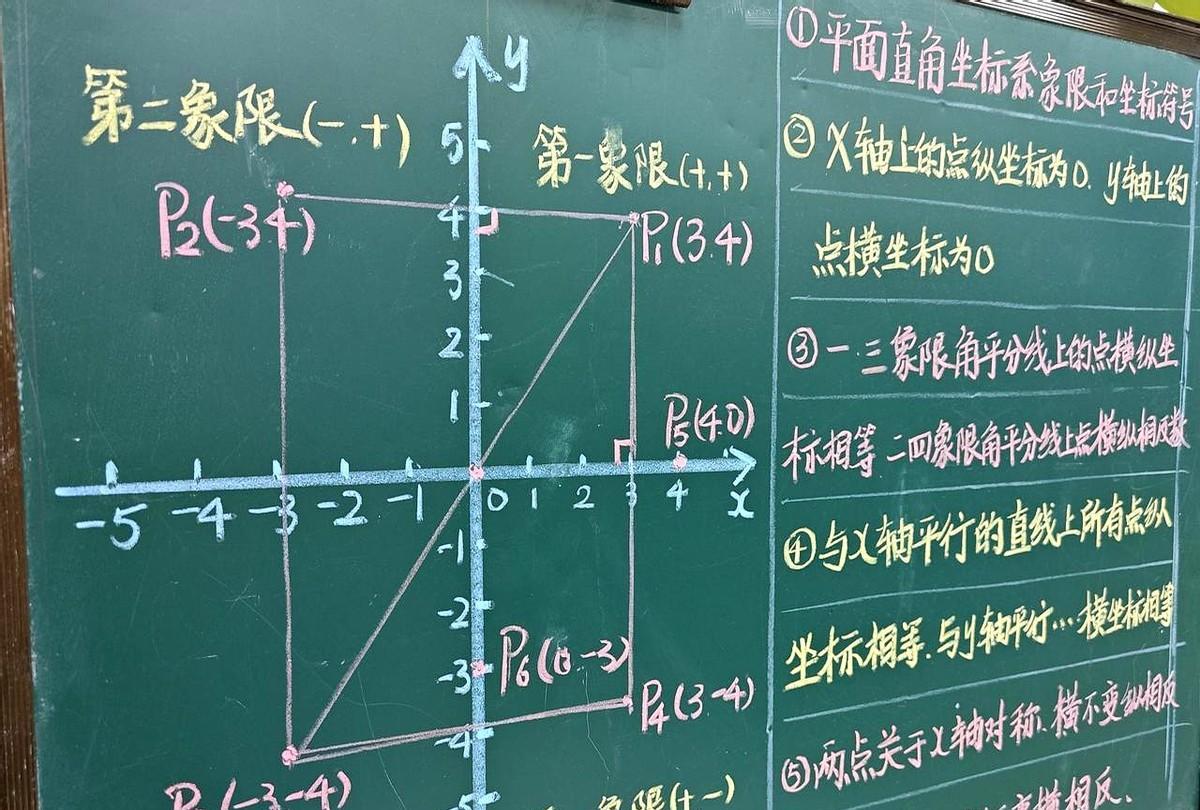 y
第二象限(-.+)
5
第一象限(+.+)
P2(-34)
4
P1(3.4)
3
2
1
P5(4.0)
-5 -4 -3 -2 -1 0 1 2 3 4 x
-1
-2
-3
P6(0-3)
P4(3-4)
-4
(-3-4)
象限(+-)
①平面直角坐标系象限和坐标符号
②X轴上的点纵坐标为0.y轴上的
点横坐标为0
③一.三象限角平分线上的点横纵坐
标相等 二四象限角平分线上点横纵相反数
④与X轴平行的直线上所有点纵
坐标相等.与y轴平行…横坐标相等
⑤两点关于X轴对称.横不变纵相反
横相反.